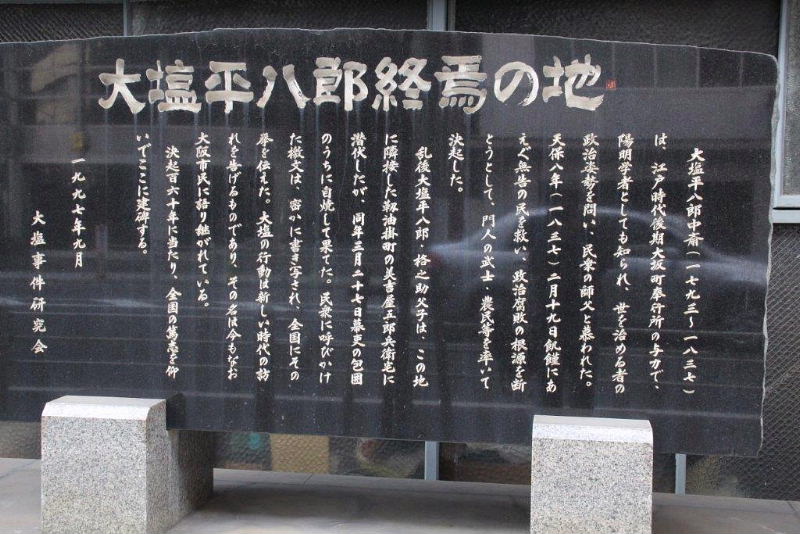 大塩平八郎終焉の地
大塩平八郎中斎(一七九三~一八三七)
は、江戸時代後期大坂町奉行所の与力で、
陽明学者としても知られ、世を治める者の
政治姿勢を問い、民衆の師父と慕われた。
天保八年(一八三七)二月十九日飢饉にあ
えぐ無告の民を救い、政治腐敗の根源を断
とうとして、門人の武士・農民等を率いて
決起した。
乱後大塩平八郎・格之助父子は、この地
に隣接した靱油掛町の美吉屋五郎兵衛宅に
潜伏したが、同年三月二十七日幕吏の包囲
のうちに自焼して果てた。民衆に呼びかけ
た檄文は、密かに書き写され、全国にその
挙を伝えた。大塩の行動は新しい時代の訪
れを告げるものであり、その名は今もなお
大阪市民に語り継がれている。
決起百六十年に当たり、全国の篤志を仰
いでここに建碑する。
一九九七年九月
大塩事件研究会